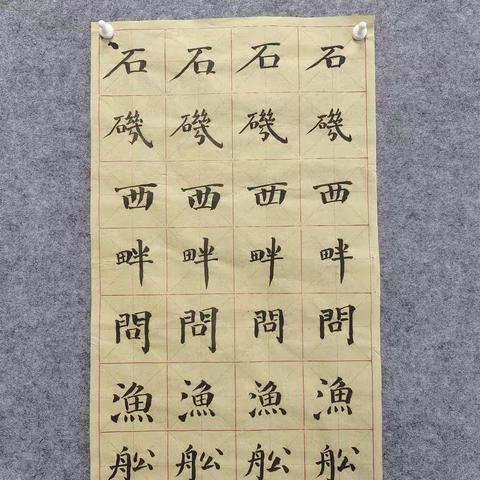 石石石石
磯磯磯磯
西西西西
畔畔畔畔
問問問問
漁漁漁漁
舩舩舩舩